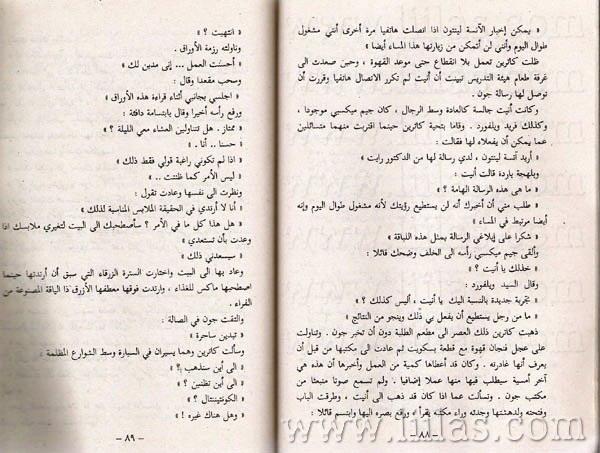 « يمكن إخبار الآنسة لينتون اذا اتصلت هاتفيا مرة أخرى أنني مشغول
طوال اليوم وأنني لن أتمكن من زيارتها هذا المساء أيضا »
ظلت كاثرين تعمل بلا انقطاع حتى موعد القهوة ، وحين صعدت الى
غرفة طعام هيئة التدريس تبينت أن أنيت لم تكرر الاتصال هاتفيا وقررت أن
توصل لها رسالة جون .
وكانت أنيت جالسة كالعادة وسط الرجال ، كان جيم ميكسبي موجودا ،
وكذلك فريد ويلفورد . وقاما بتحية كاثرين حينما اقتربت منهما متسائلين
عما يمكن أن يفعلاه لها فقالت :
« أريد آنسة لينتون ، لدي رسالة لها من الدكتور رايت »
وبلهجة باردة قالت أنيت :
« ما هى هذه الرسالة الهامة ؟ »
« طلب مني أن أخبرك أنه لن يستطيع رؤيتك لأنه مشغول طوال اليوم وإنه
أيضا مرتبط في المساء »
« شكرا على إبلاغي الرسالة بمثل هذه اللباقة »
وألقى جيم ميكسبي رأسه الى الخلف وضحك قائلا :
« خذلك يا أنيت ؟ »
وقال السيد ويلفورد :
« تجربة جديدة بالنسبة اليك يا أنيت ، أليس كذلك ؟ »
« ما من رجل يستطيع أن يفعل بي ذلك وينجو من النتائج »
ذهبت كاثرين ذلك العصر الى مطعم الطلبة دون أن تخبر جون . وتناولت
على عجل فنجان قهوة مع قطعة بسكويت ثم عادت الى مكتبها من قبل أن
يعرف أنها غادرته . وكان قد أعطاها كمية من العمل وأخبرها أن هذه هي
آخر أمسية سيطلب فيها منها عملا إضافيا . ولم تسمع صوتا منبعثا من
مكتب جون . وتسألت عما اذا كان قد ذهب الى أنيت ، وطرقت الباب
وفتحته ولدهشتها وجدته وراء مكتبه يقرأ ، ورفع بصره اليها وابتسم قائلا :
– ٨٨ –
« انتهيت ؟ »
وناولته رزمة الأوراق .
« أحسنت العمل ... إني مدين لك »
وسحب مقعدا وقال :
« اجلسي بجانبي أثناء قراءة هذه الأوراق »
ورفع رأسه أخيرا وقال بابتسامة دافئة :
« ممتاز . هل تتناولين العشاء معي الليلة ؟ »
« حسنا .. أنا . »
« اذا لم تكوني راغبة قولي فقط ذلك »
« ليس الأمر كما ظننت .. »
ونظرت الى نفسها وعادت تقول :
« أنا لا أرتدي في الحقيقة الملابس المناسبة لذلك »
« هل هذا كل ما في الأمر ؟ سأصطحبك الى البيت لتغيري ملابسك اذا
وعدت بأن تستعدي »
« سيسعدني ذلك »
وعاد بها الى البيت واختارت السترة الزرقاء التي سبق أن أرتدتها حينما
اصطحبها ماكس للغذاء ، وارتدت فوقها معطفها الأزرق ذا الياقة المصنوعة من
الفراء .
والتقت جون في الصالة :
« تبدين ساحرة »
وسألت كاثرين وهما يسيران في السيارة وسط الشوارع المظلمة :
« الى أين سنذهب ؟ »
« الى أين تظنين ؟ »
« الكونتيننتال ؟ »
« وهل هناك غيره ! »
– ٨٩ –
www.liilas.com